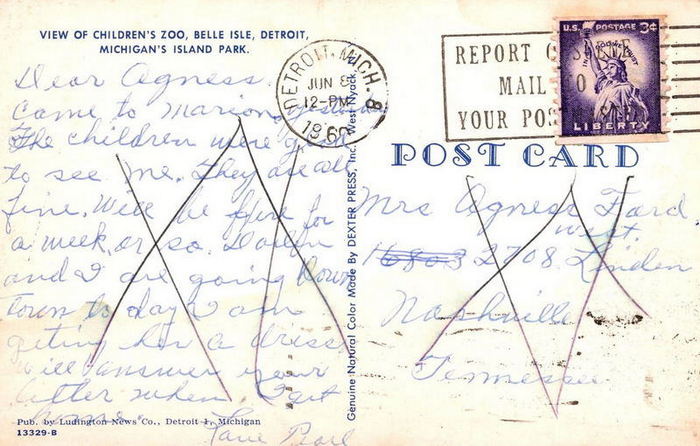 VIEW OF CHILDREN'S ZOO, BELLE ISLE, DETROIT,
MICHIGAN'S ISLAND PARK.
Dear Agness.
Came to Marions
The children were glad
to see me. They are all
fine. Will be here for
a week or so.
and I are going down
town to day I am
geting her a dress
will answer your
letter when I get
home.
Pub. by Ludington News Co., Detroit 1, Michigan
13329-B
Genuine Natural Color Made By DEXTER PRESS, Inc., West Nyack,
DETROIT, MICH. 8
JUN 8
12-PM
1960
REPORT
MAIL
YOUR POS
U.S. POSTAGE 3¢
IN GOD WE TRUST
LIBERTY
POST CARD
Mrs Agness Ford
west
16803 2708 Linden
Nashville
Tennessee